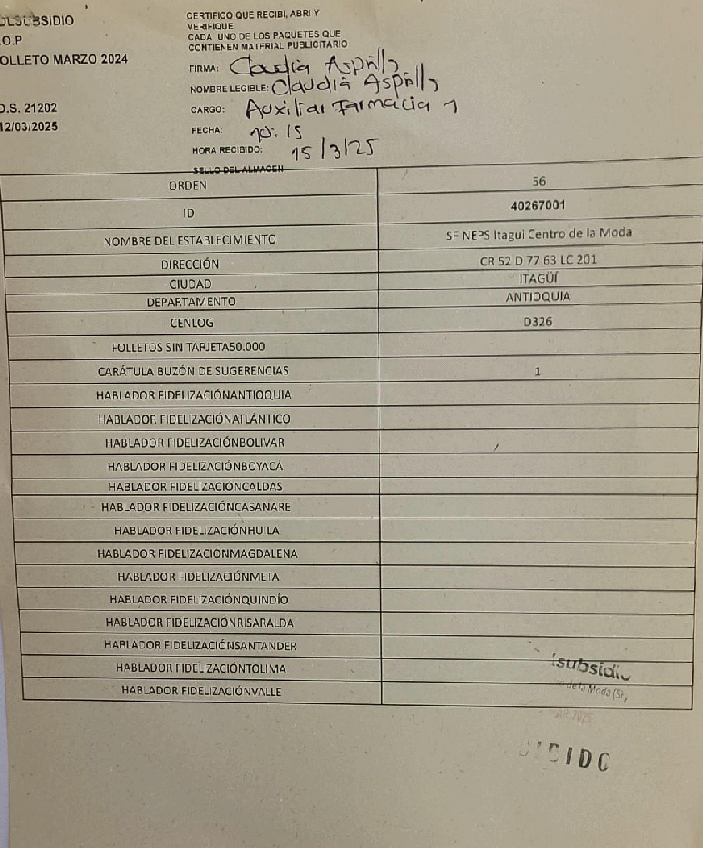 SUBSIDIO
O.P
OLLETO MARZO 2024
D.S. 21202
12/03/2025
CERTIFICO QUE RECIBI, ABRI Y
VERIFIQUE
CADA UNO DE LOS PAQUETES QUE
CONTIENEN MATERIAL PUBLICITARIO
FIRMA: Claudia Asprilla
NOMBRE LEGIBLE: Claudia Asprilla
CARGO: Auxiliar Farmacia 1
FECHA:
HORA RECIBIDO: 15/3/25
SELLO DEL ALMACEN
ORDEN 56
ID 40267001
NOMBRE DEL ESTABLECIMIENTO Itagui Centro de la Moda
DIRECCIÓN CR 52 D 77 63 LC 201
CIUDAD ITAGÜÍ
DEPARTAMENTO ANTIOQUIA
CENLOG D326
FOLLETOS SIN TARJETA50.000
CARÁTULA BUZÓN DE SUGERENCIAS 1
HABLADOR FIDELIZACIÓNANTIOQUIA
HABLADOR FIDELIZACIÓNATLÁNTICO
HABLADOR FIDELIZACIÓNBOLIVAR
HABLADOR FIDELIZACIÓNBOYACA
HABLADOR FIDELIZACIONCALDAS
HABLADOR FIDELIZACIÓNCASANARE
HABLADOR FIDELIZACIÓNHUILA
HABLADOR FIDELIZACIONMAGDALENA
HABLADOR FIDELIZACIÓNMETA
HABLADOR FIDELIZACIÓNQUINDÍO
HABLADOR FIDELIZACIONRISARALDA
HABLADOR FIDELIZACIÓNSANTANDER
HABLADOR FIDELIZACIONTOLIMA
HABLADOR FIDELIZACIÓNVALLE
subsidio
de la Moda